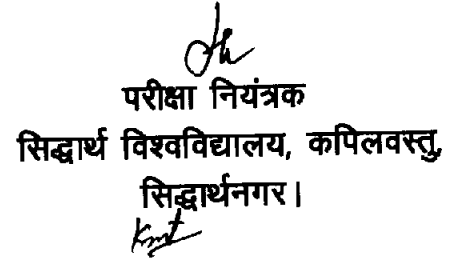 परीक्षा नियंत्रक
सिद्धार्थ विश्वविद्यालय, कपिलवस्तु,
सिद्धार्थनगर।